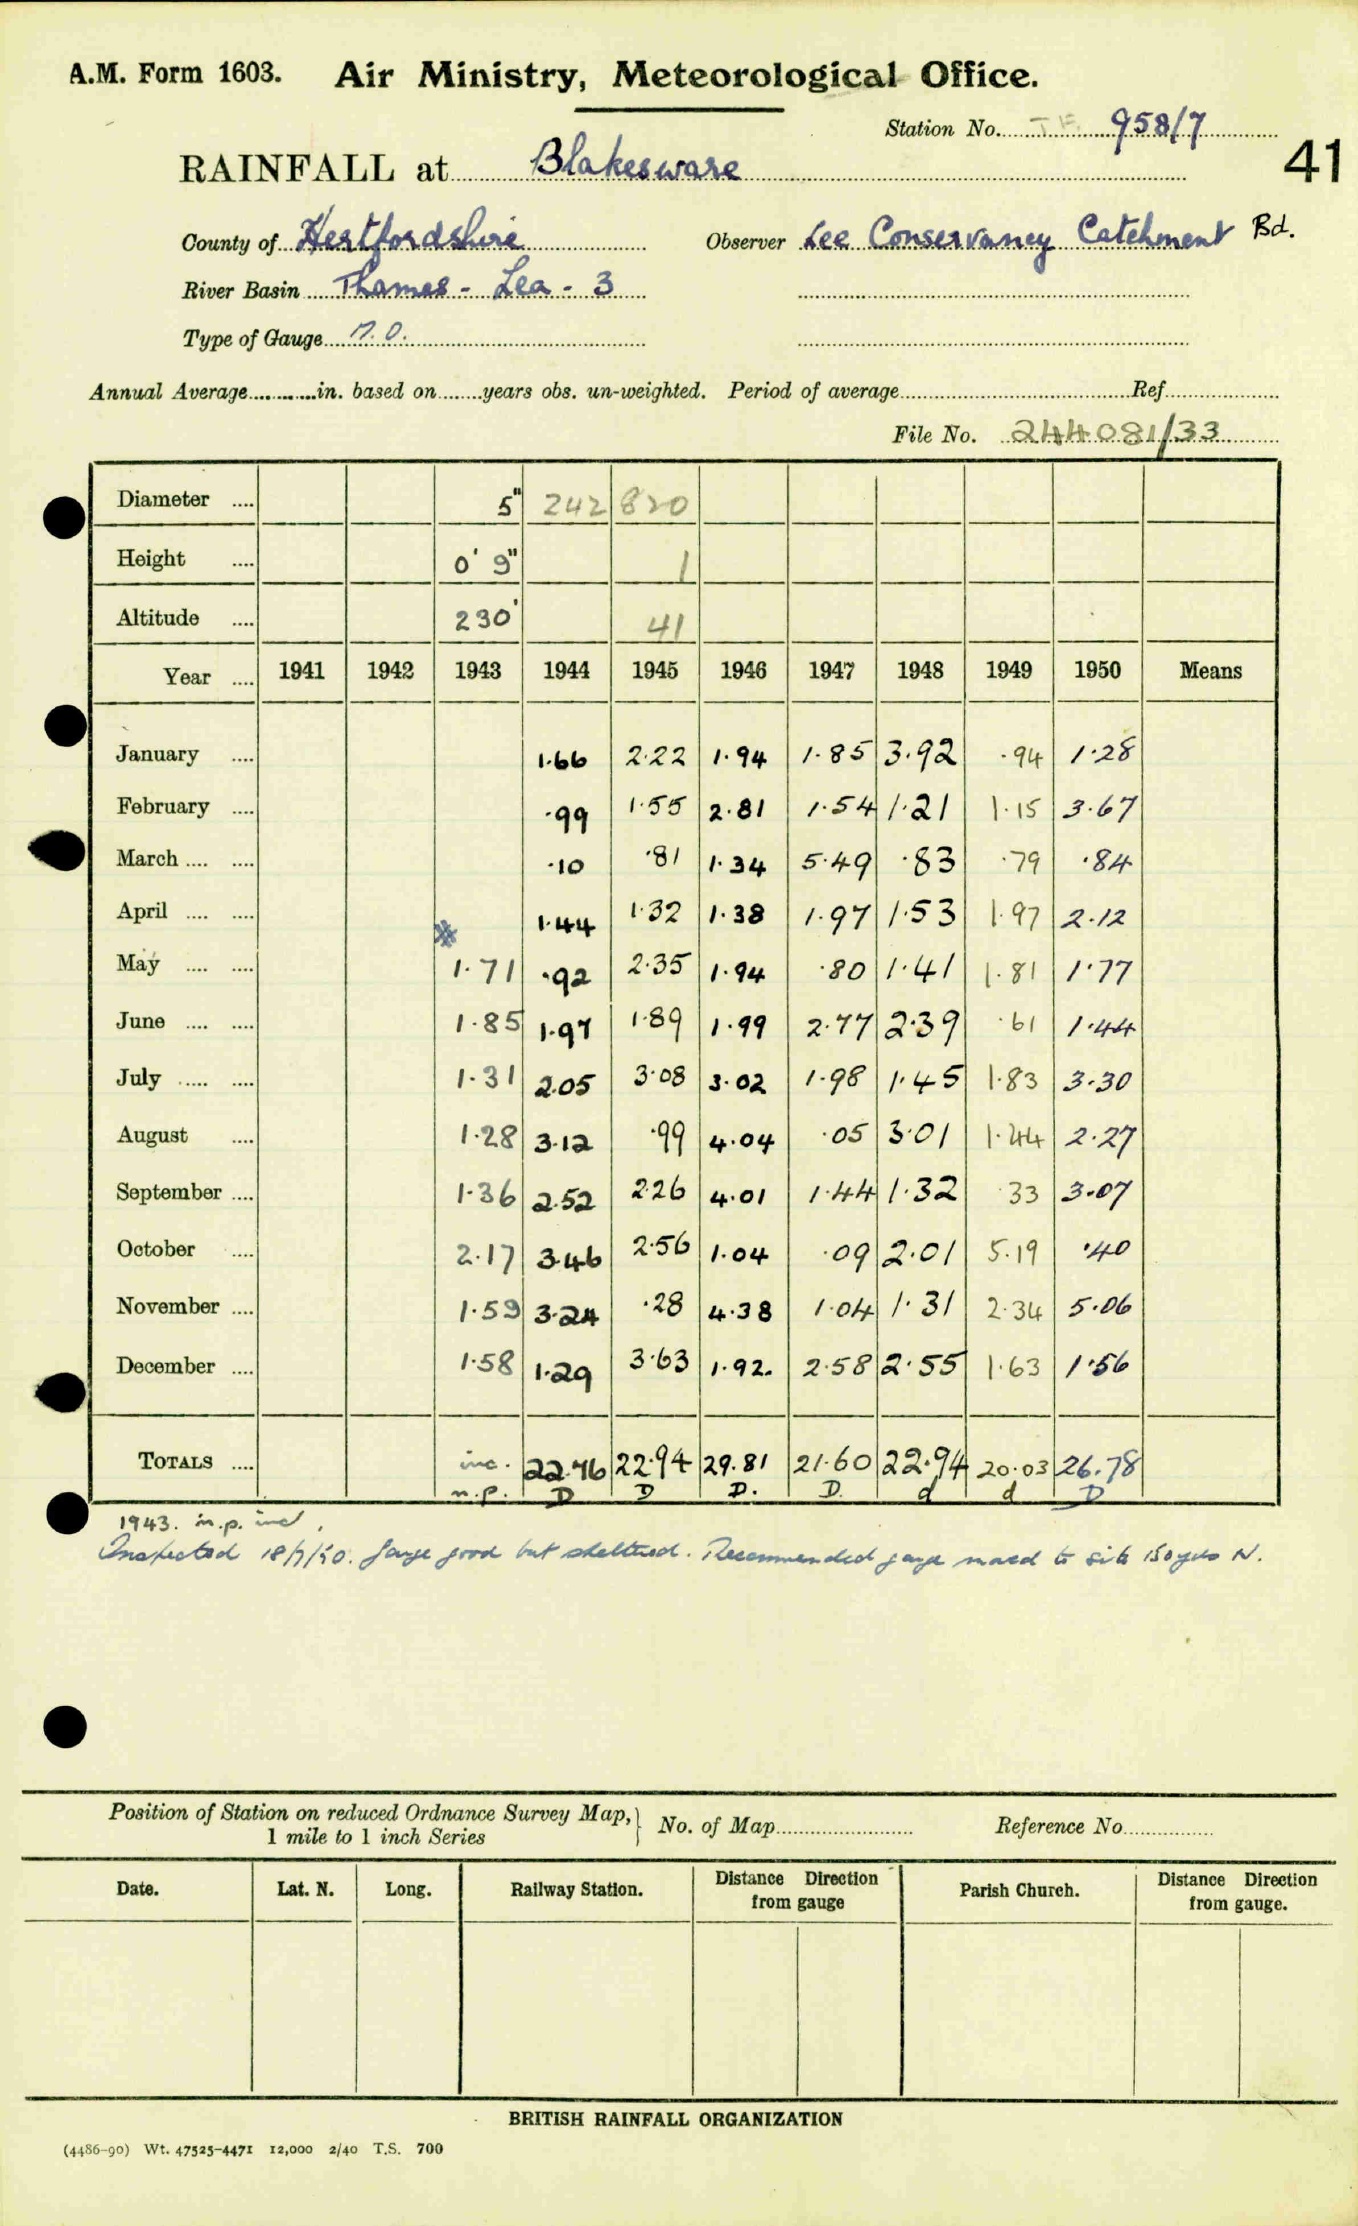 A.M. Form 1603. Air Ministry, Meteorological Office.
Station No. T.F. 958/7
41
RAINFALL at Blakesware
County of Hertfordshire Observer Lee Conservancy Catchment Bd.
River Basin Thames - Lea - 3
Type of Gauge M.O.
Annual Average in. based on years obs. un-weighted. Period of average Ref
File No. 244081/33
Diameter .... 5" 242 820
Height .... 0' 9" 1
Altitude .... 230' 41
Year .... 1941 1942 1943 1944 1945 1946 1947 1948 1949 1950 Means
January .... 1.66 2.22 1.94 1.85 3.92 .94 1.28
February .... .99 1.55 2.81 1.54 1.21 1.15 3.67
March .... .... .10 .81 1.34 5.49 .83 .79 .84
April .... .... 1.44 1.32 1.38 1.97 1.53 1.97 2.12
May .... .... 1.71 .92 2.35 1.94 .80 1.41 1.81 1.77
June .... .... 1.85 1.97 1.89 1.99 2.77 2.39 .61 1.44
July .... .... 1.31 2.05 3.08 3.02 1.98 1.45 1.83 3.30
August .... 1.28 3.12 .99 4.04 .05 3.01 1.44 2.27
September .... 1.36 2.52 2.26 4.01 1.44 1.32 .33 3.07
October .... 2.17 3.46 2.56 1.04 .09 2.01 5.19 .40
November .... 1.59 3.24 .28 4.38 1.04 1.31 2.34 5.06
December .... 1.58 1.29 3.63 1.92. 2.58 2.55 1.63 1.56
TOTALS .... inc. 22.76 22.94 29.81 21.60 22.94 20.03 26.78
n.p. D D D. D. d d D
1943. n.p. incl.
Inspected 18/7/50. Gauge good but sheltered. Recommended gauge moved to site 150 yds N.
Position of Station on reduced Ordnance Survey Map, No. of Map Reference No
1 mile to 1 inch Series
Date. Lat. N. Long. Railway Station. Distance Direction from gauge Parish Church. Distance Direction from gauge.
BRITISH RAINFALL ORGANIZATION
(4486-90) Wt. 47525-4471 12,000 2/40 T.S. 700